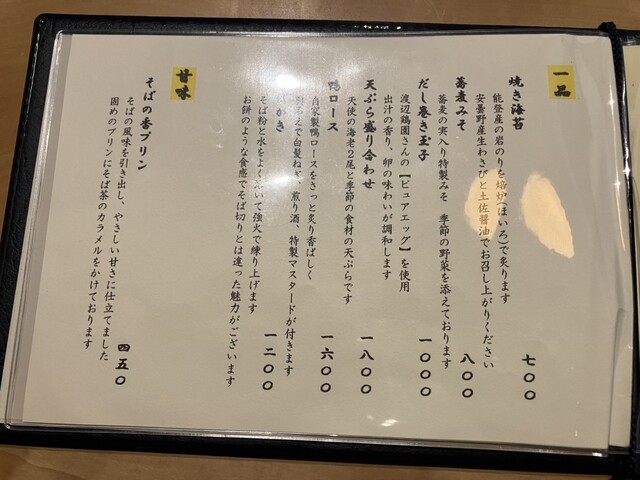 一品
焼き海苔
能登産の岩のりを焙炉(ほいろ)で炙ります
安曇野産生わさびと土佐醤油でお召し上がりください
七〇〇
蕎麦みそ
蕎麦の実入り特製みそ 季節の野菜を添えております
八〇〇
だし巻き玉子
渡辺鶏園さんの【ピュアエッグ】を使用
出汁の香り、卵の味わいが調和します
一〇〇〇
天ぷら盛り合わせ
天使の海老2尾と季節の食材の天ぷらです
一八〇〇
鴨ロース
自家製鴨ロースをさっと炙り香ばしく
白髪ねぎ、煎り酒、特製マスタードが付きます
一六〇〇
がき
そば粉と水をよく 強火で練り上げます
お餅のような食感でそば切りとは違った魅力がございます
一二〇〇
甘味
そばの香プリン
そばの風味を引き出し、やさしい甘さに仕立てました
固めのプリンにそば茶のカラメルをかけております
四五〇